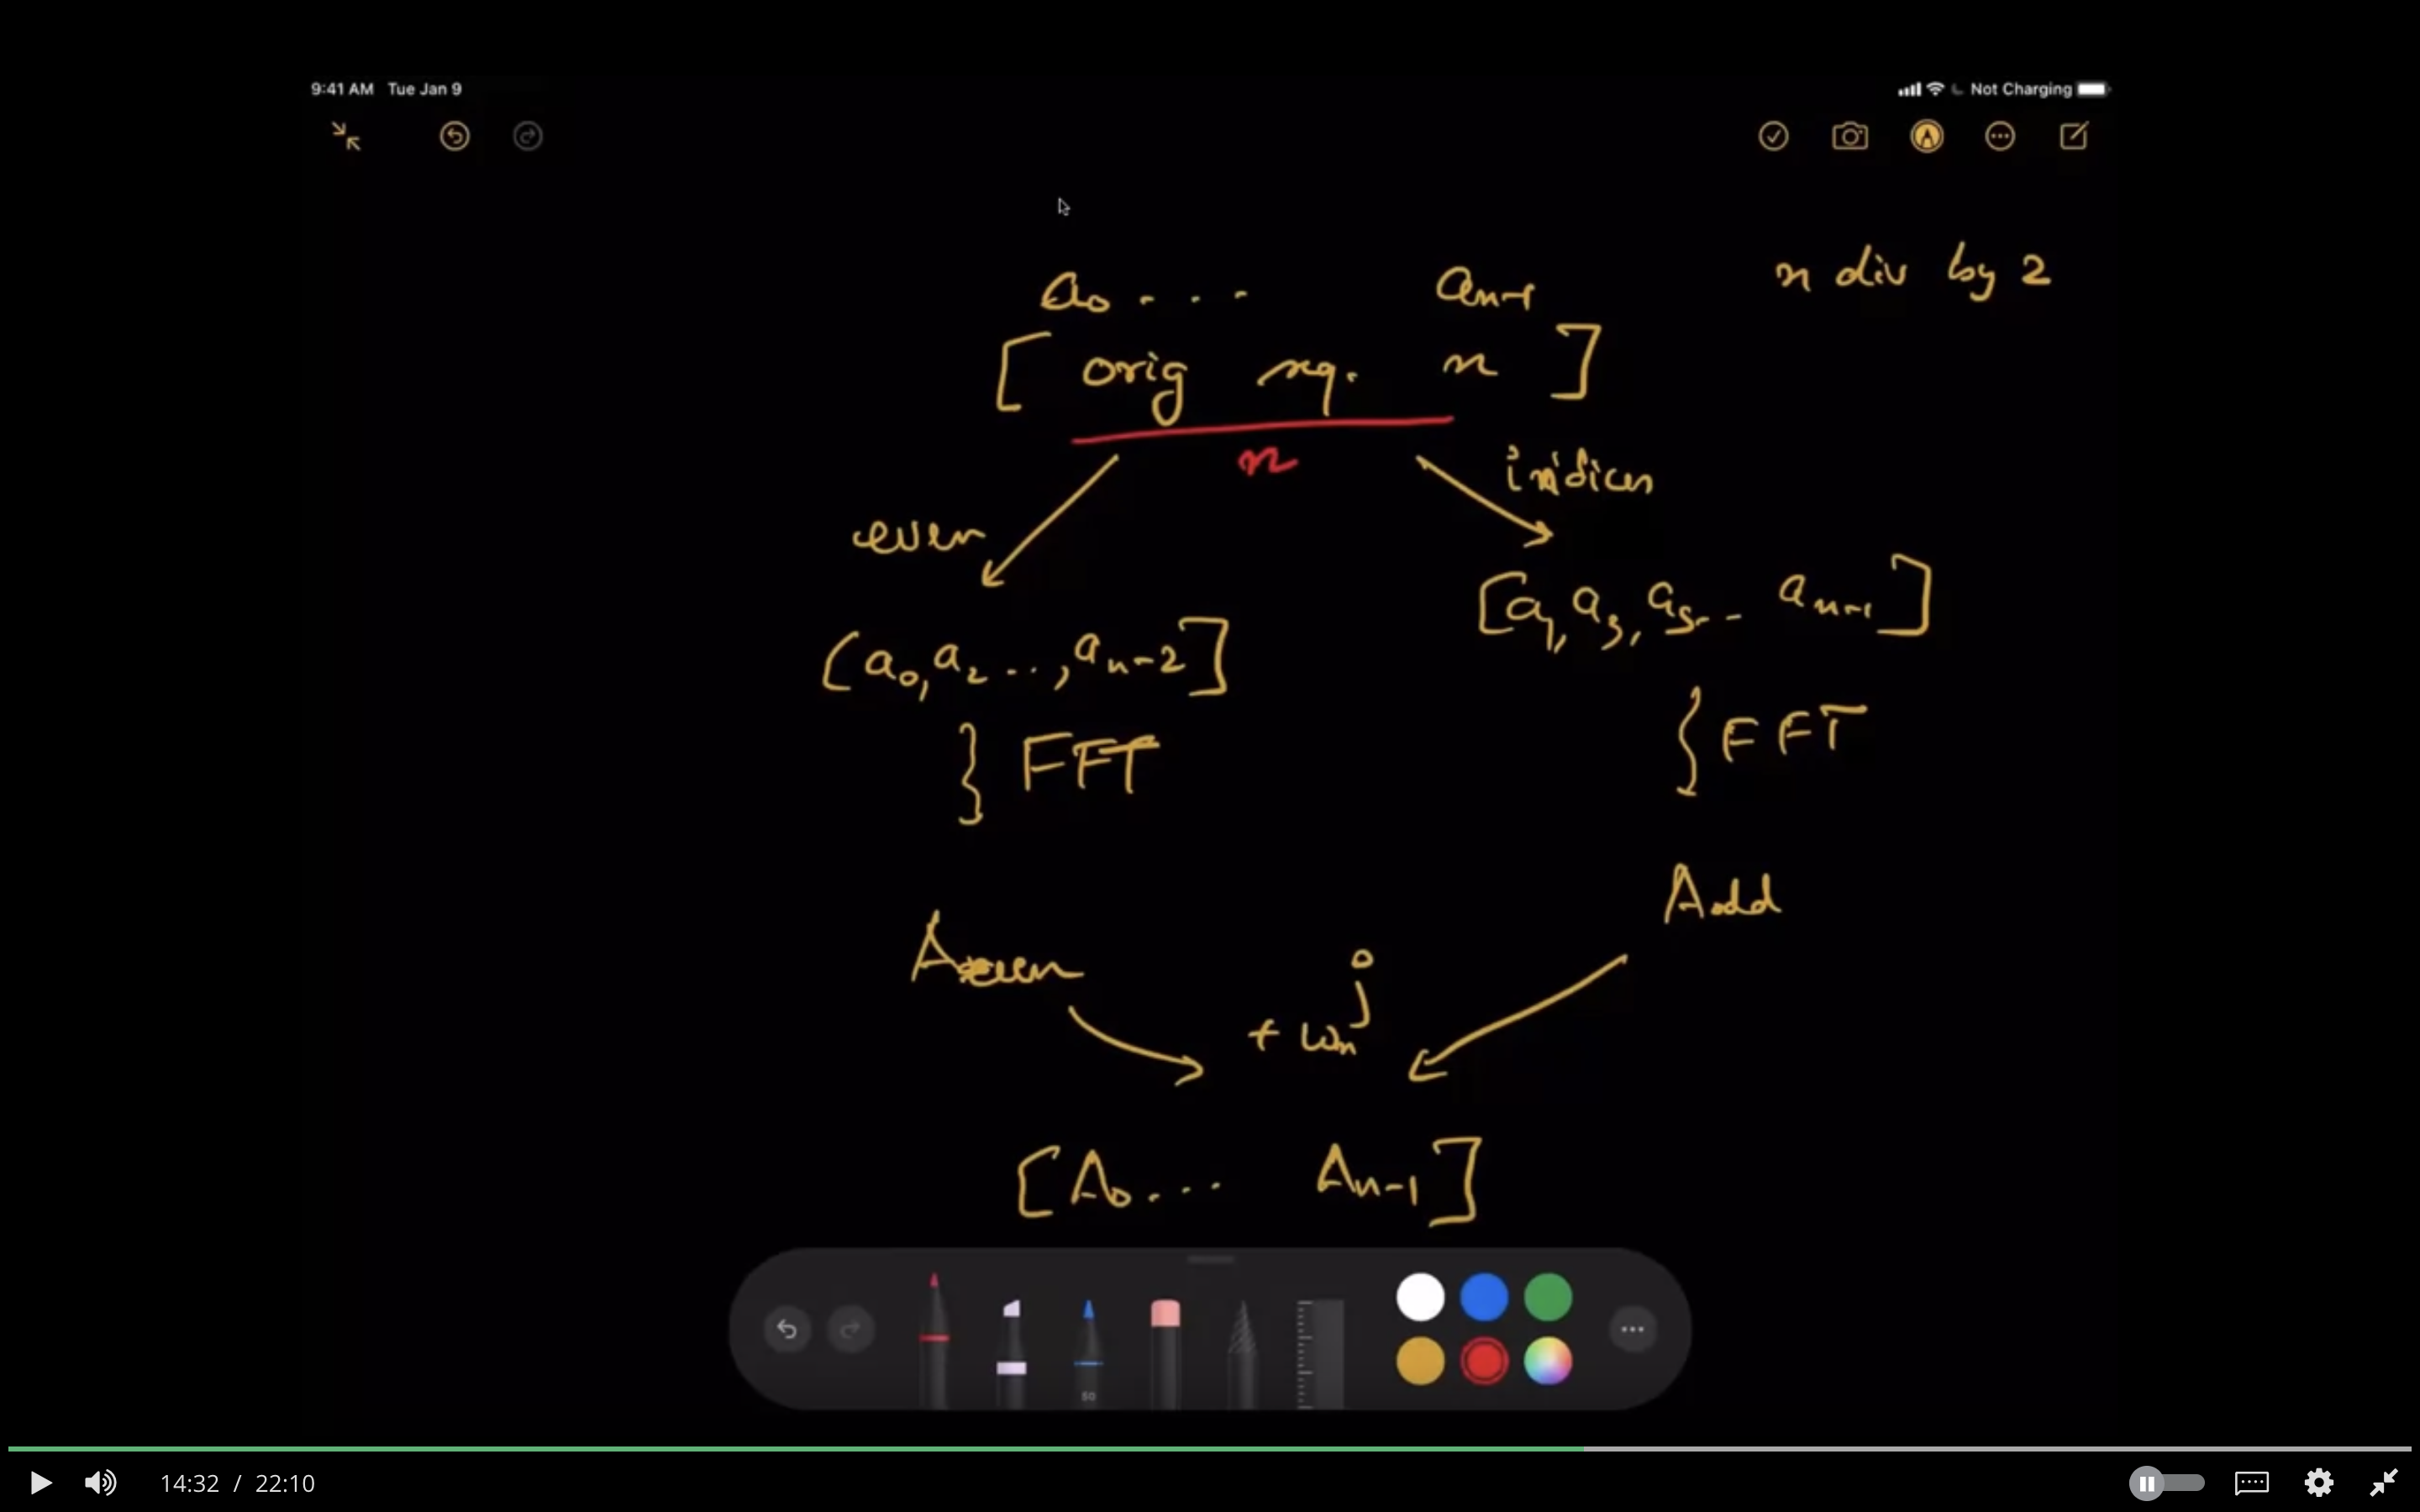 9:41 AM Tue Jan 9 Not Charging
n div by 2
a₀ . . . aₙ₋₁
[ orig seq. n ]
n
indices
even
[a₁, a₃, a₅.. aₙ₋₁]
[a₀, a₂ ..., aₙ₋₂]
} FFT
{ FFT
Aodd
Aeven
+ ωₙʲ
[A₀ . . . Aₙ₋₁]
50
14:32 / 22:10